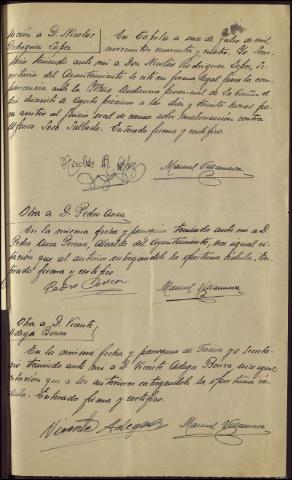 tación a D. Nicolás
Rodríguez López
En Tapia a once de Julio de mil
novecientos cuarenta y cuatro. Yo Secre
tario teniendo ante mí a Don Nicolás Rodríguez López, Se
cretario del Ayuntamiento le cité en forma legal para la com
parecencia ante la Audiencia provincial de
día diecisiete de Agosto próximo a las diez y treinta horas pa
ra asistir al juicio oral de causa sobre malversación contra
Enterado firma y certifico.
Manuel Villanueva
Otra a D. Pedro
En la misma fecha y teniendo ante mí a D.
Pedro Alcalde del Ayuntamiento, hice igual ci
tación que al anterior entregándole la oportuna cédula. En
terado firma y certifico
Pedro
Manuel Villanueva
Otra a D. Vicente
Adega
En la misma fecha y yo Secreta
rio teniendo ante mí a D. Vicente Adega hice igual
citación que a los anteriores entregándole la oportuna cé
dula. Enterado firma y certifico.
Vicente Adega
Manuel Villanueva